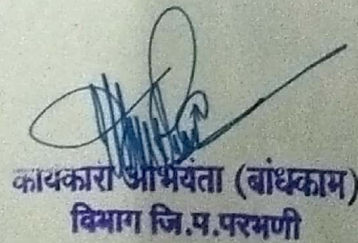 कार्यकारी अभियंता (बांधकाम)
विभाग जि.प.परभणी